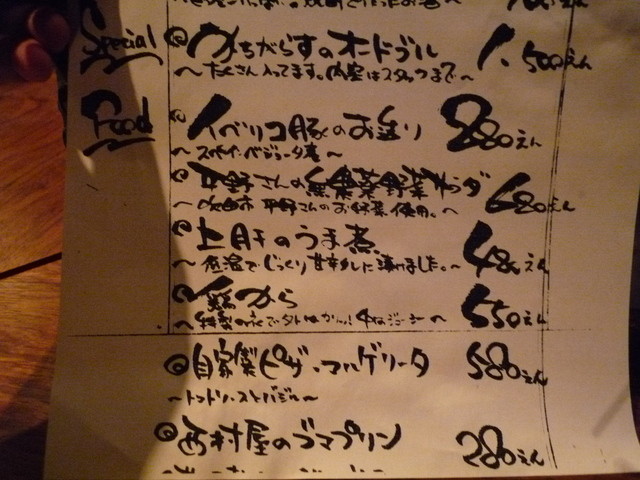 Special
かちがらすのオードブル 1,500えん
〜たくさん入ってます。内容はスタッフまで〜
Food
イベリコ豚のお造り 880えん
〜スペイン・ベジョータ産〜
平野さんの無農薬野菜サラダ 680えん
平野さんのお野菜使用。〜
上肝のうま煮 480えん
〜低温でじっくり甘辛しに漬けました。〜
鶏から 550えん
自家製ピザ・マルゲリータ 580えん
西村屋のゴマプリン 280えん